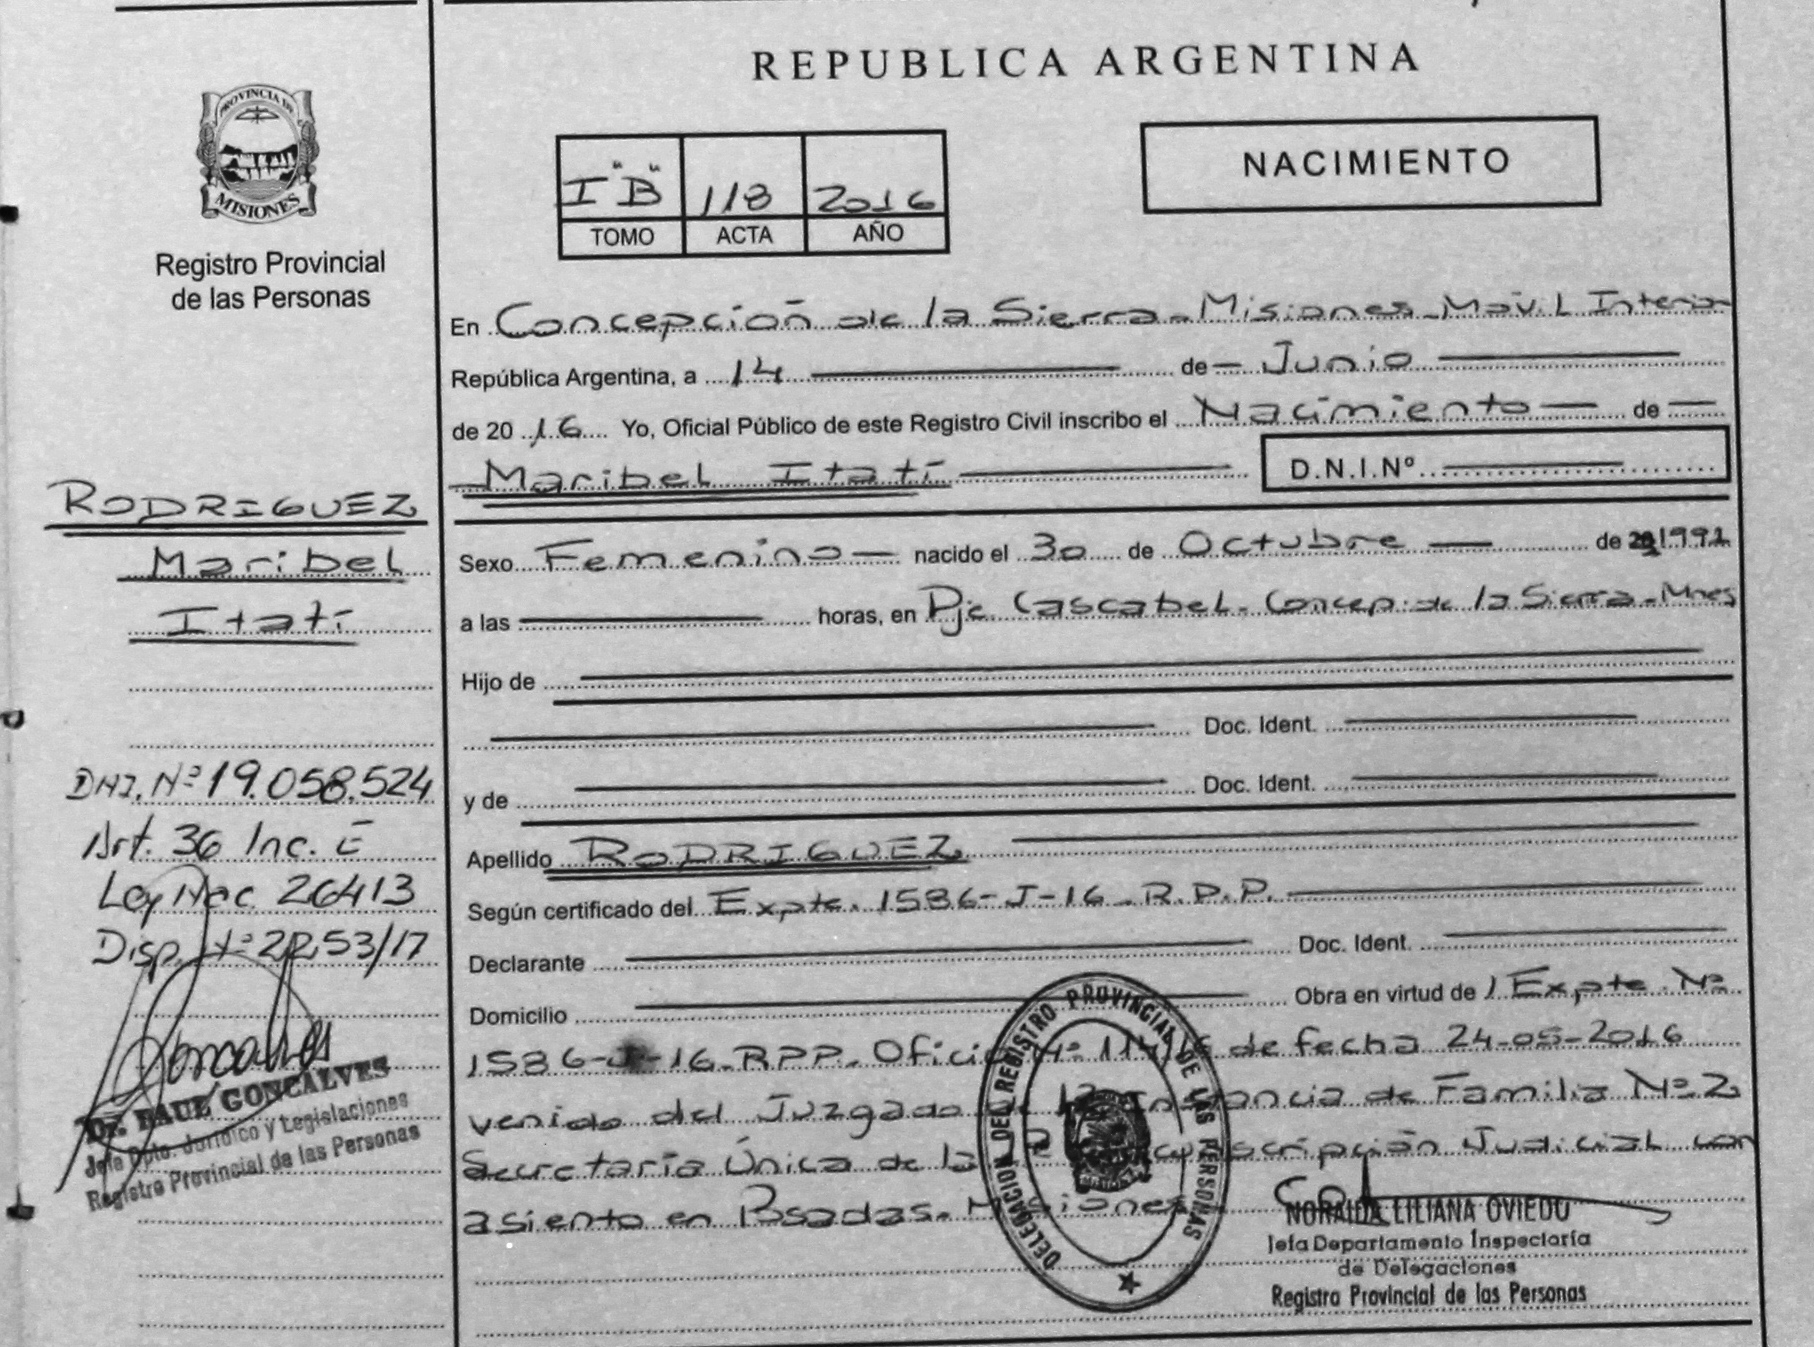 REPUBLICA ARGENTINA
PROVINCIA DE
MISIONES
Registro Provincial
de las Personas
I "B" 118 2016
TOMO ACTA AÑO
NACIMIENTO
En Concepción de la Sierra - Misiones - Móvil Interior
República Argentina, a 14 de Junio
de 2016 Yo, Oficial Público de este Registro Civil inscribo el Nacimiento de
Maribel Itatí D.N.I.Nº
Sexo Femenino nacido el 30 de Octubre de 1991
a las horas, en Pje Cascabel - Concep. de la Sierra - Mnes
Hijo de
Doc. Ident.
y de Doc. Ident.
Apellido RODRIGUEZ
Según certificado del Expte. 1586-J-16 - R.P.P.
Declarante Doc. Ident.
Domicilio Obra en virtud de 1 Expte. Nº
1586-J-16-RPP. Oficio Nº 114/16 de fecha 24-05-2016
venido del Juzgado de 1ª Instancia de Familia Nº 2
Secretaría Única de la Circunscripción Judicial con
asiento en Posadas - Misiones
RODRIGUEZ
Maribel
Itatí
DNI. Nº 19.058.524
Art. 36 Inc. E
Ley Nac. 26413
Disp. Nº 2253/17
Goncalves
Dr. PAUL GONCALVES
Jefe Dpto. Jurídico y Legislaciones
Registro Provincial de las Personas
DELEGACION DEL REGISTRO PROVINCIAL DE LAS PERSONAS
NORAIDA LILIANA OVIEDO
Jefa Departamento Inspectoría
de Delegaciones
Registro Provincial de las Personas